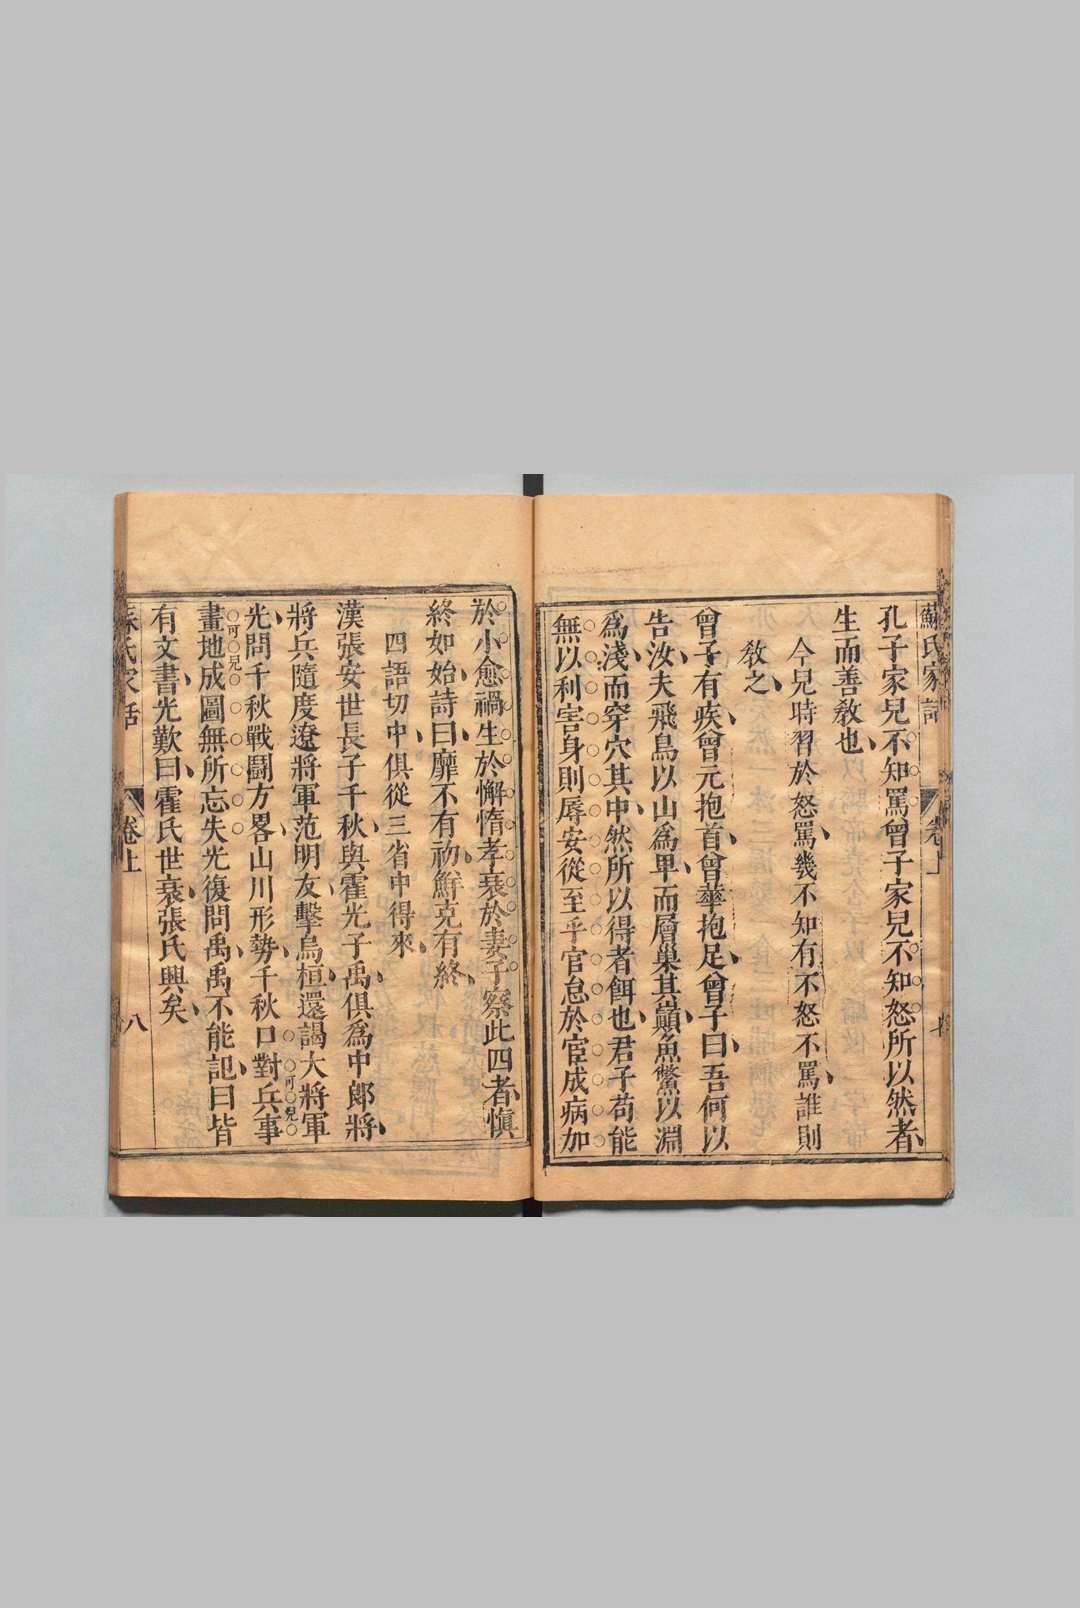 蘇氏家語 卷上 七
孔子家兒不知罵曾子家兒不知怒所以然者
生而善教也
今兒時習於怒罵幾不知有不怒不罵誰則
教之
曾子有疾曾元抱首曾華抱足曾子曰吾何以
告汝夫飛鳥以山為卑而層巢其巔魚鱉以淵
為淺而穿穴其中然所以得者餌也君子苟能
無以利害身則辱安從至乎官怠於宦成病加
於小愈禍生於懈惰孝衰於妻子察此四者慎
終如始詩曰靡不有初鮮克有終
四語切中俱從三省中得來
漢張安世長子千秋與霍光子禹俱為中郎將
將兵隨度遼將軍范明友擊烏桓還謁大將軍
可見
光問千秋戰鬬方畧山川形勢千秋口對兵事
畫地成圖無所忘失光復問禹禹不能記曰皆
可見
有文書光歎曰霍氏世衰張氏興矣
卷上 八